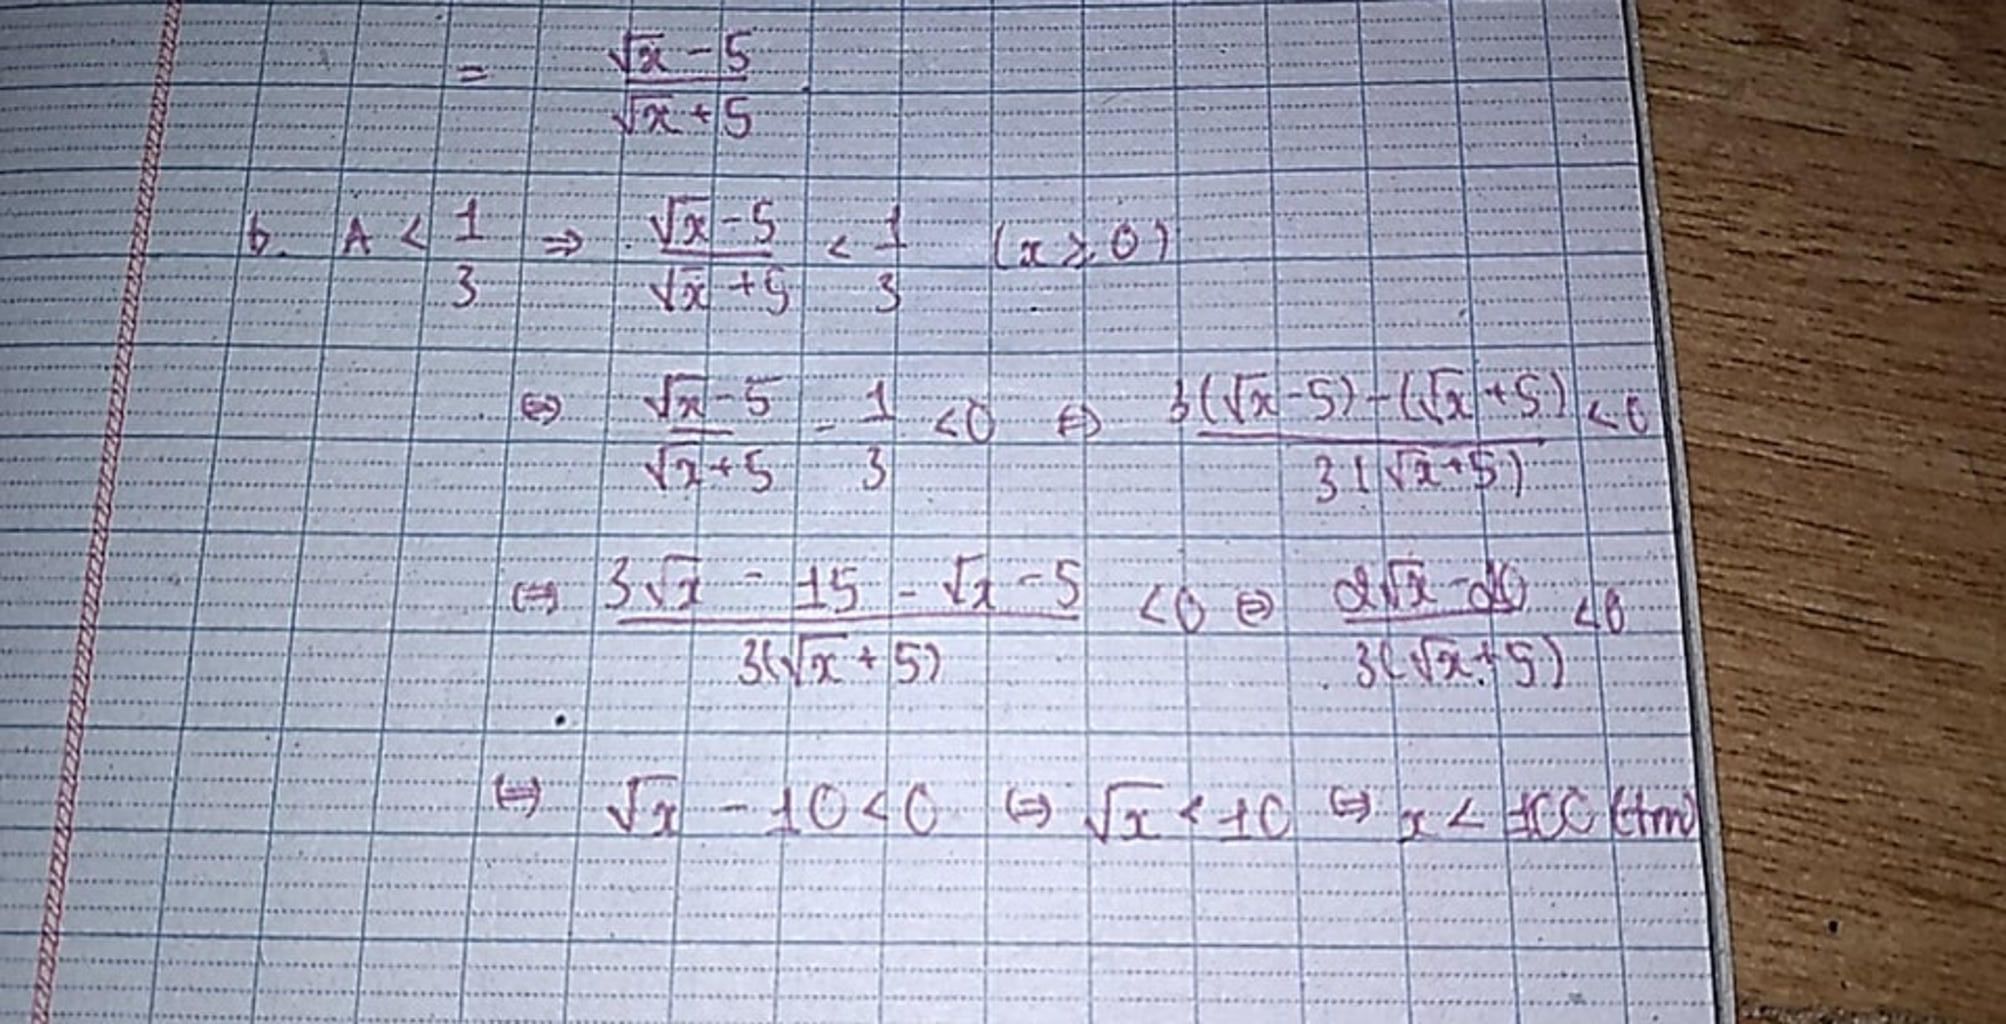 = (√x - 5)/(√x + 5)
b. A < 1/3 ⇒ (√x - 5)/(√x + 5) < 1/3 (x ⩾ 0)
⇔ (√x - 5)/(√x + 5) - 1/3 < 0 ⇔ (3(√x - 5) - (√x + 5))/(3(√x + 5)) < 0
⇔ (3√x - 15 - √x - 5)/(3(√x + 5)) < 0 ⇔ (2√x - 20)/(3(√x + 5)) < 0
⇔ √x - 10 < 0 ⇔ √x < 10 ⇔ x < 100 (tm)